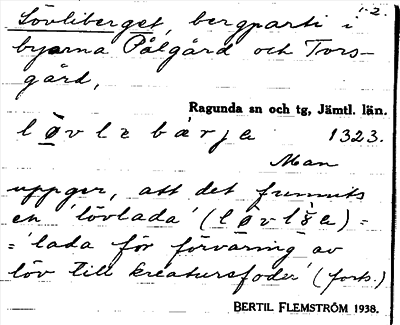 1-2.
Lövliberget, bergparti i
byarna Pålgård och Tors-
gård,
Ragunda sn och tg, Jämtl. län.
1323.
Man
uppger, att det funnits
en 'lövlada' ( ) =
= 'lada för förvaring av
löv till kreatursfoder' (forts.)
BERTIL FLEMSTRÖM 1938.